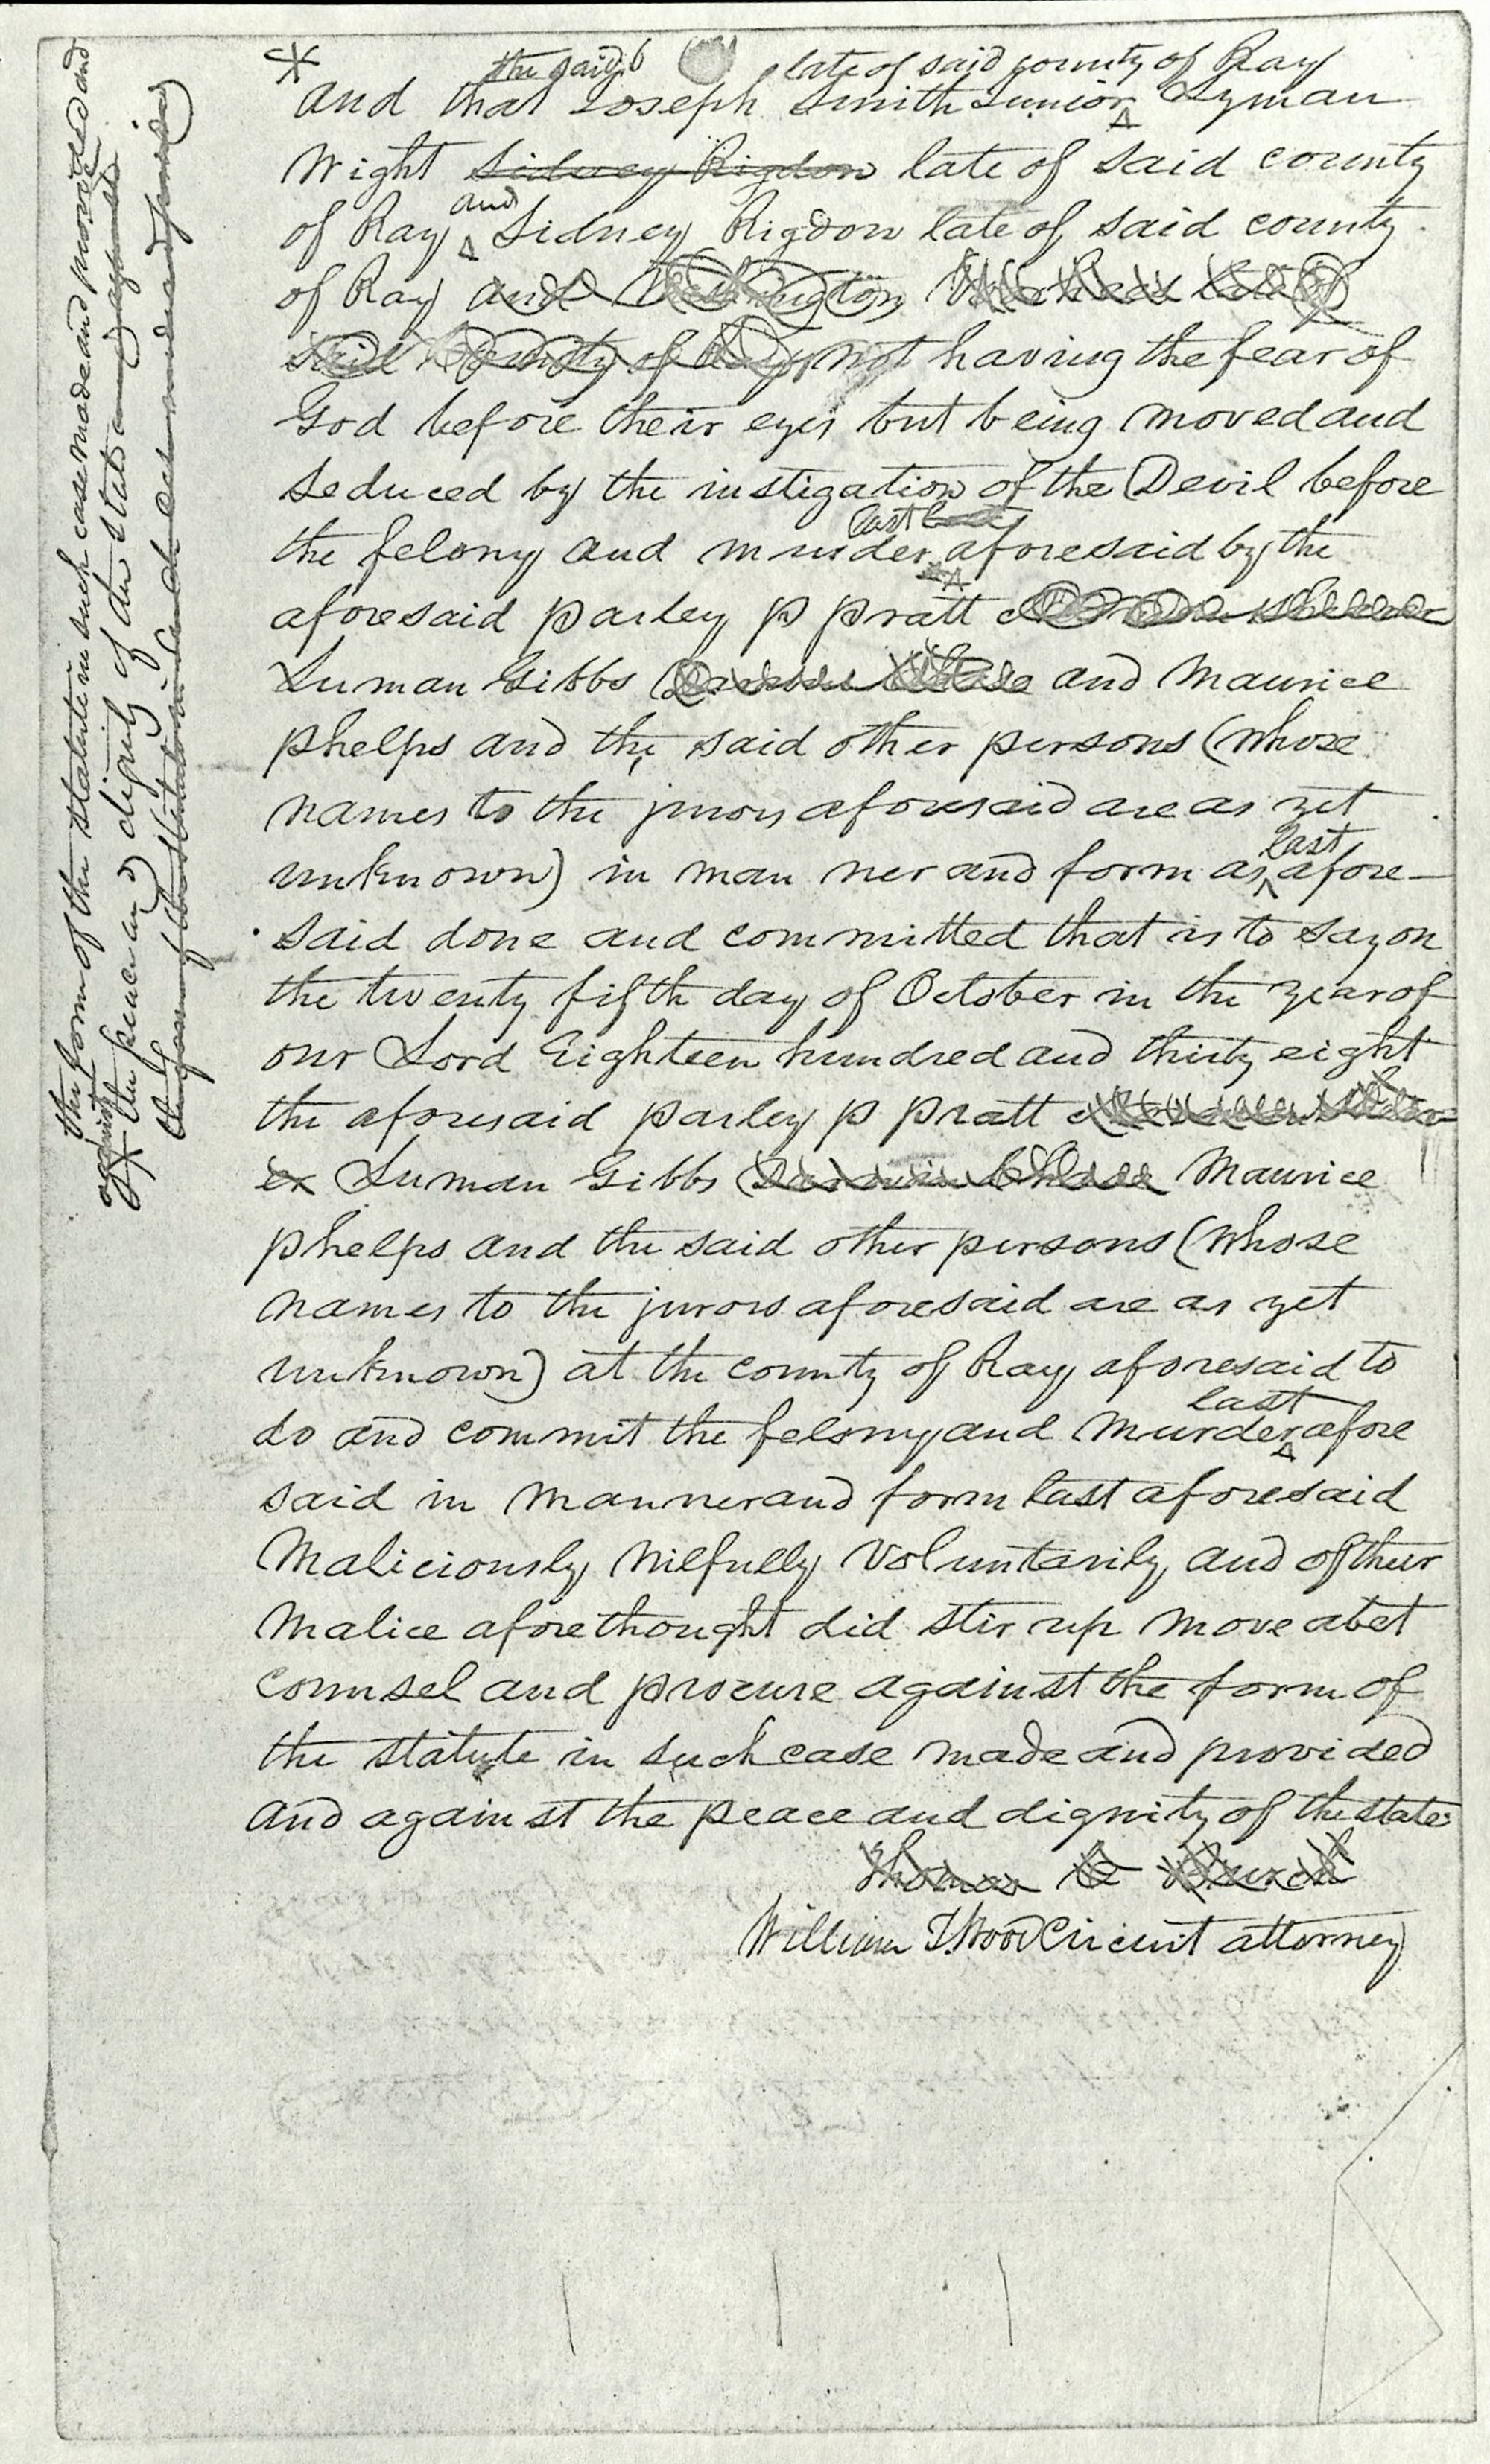 the form of the statute in such case made and provided and
against the peace and dignity of the state
*
the said late of said county of Ray
and that Joseph Smith Junior Lyman
Wight Sidney Rigdon late of said county
and
of Ray Sidney Rigdon late of said county
of Ray and Washington
said County of Ray not having the fear of
God before their eyes but being moved and
seduced by the instigation of the Devil before
last
the felony and murder aforesaid by the
aforesaid parley p pratt
Luman Gibbs and Maurice
phelps and the said other persons (whose
names to the jurors aforesaid are as yet
last
unknown) in man ner and form as afore-
said done and committed that is to say on
the twenty fifth day of October in the year of
our Lord Eighteen hundred and thirty eight
the aforesaid parley p pratt
Luman Gibbs Maurice
phelps and the said other persons (whose
names to the jurors aforesaid are as yet
unknown) at the county of Ray aforesaid to
last
do and commit the felony and murder afore
said in manner and form last aforesaid
Maliciously Wilfully Voluntarily and of their
Malice aforethought did stir up move abet
counsel and procure against the form of
the statute in such case made and provided
and against the peace and dignity of the state
Thomas C Burch
William T. Wood Circuit attorney